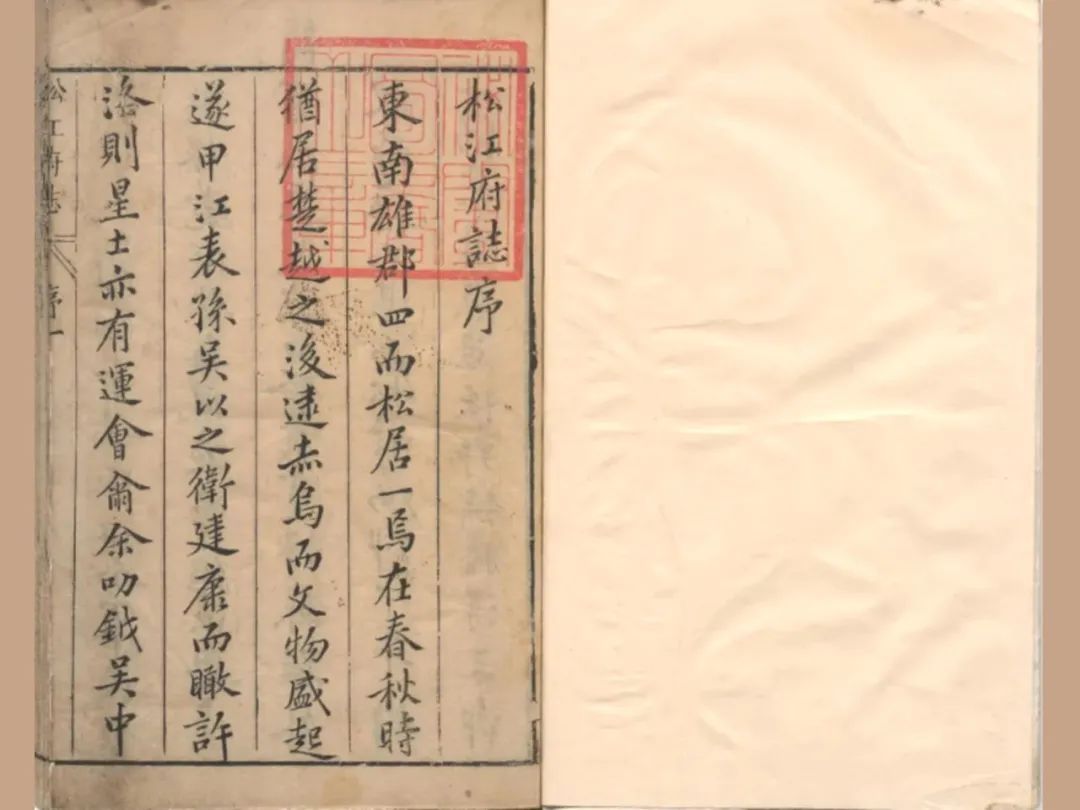 松江府誌序
東南雄郡四而松居一焉在春秋時
猶居楚越之後逮赤烏而文物盛起
遂甲江表孫吴以之衛建康而瞰許
洛則星土亦有運會爾余叨鉞吴中
松江府志
序一